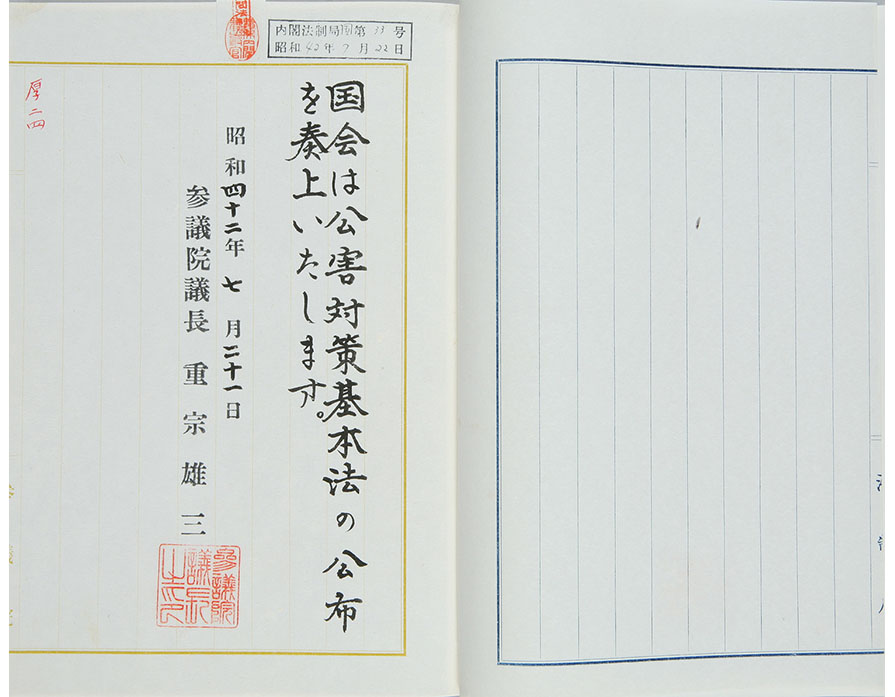 内閣法制局 第33号
昭和42年7月22日
国会は公害対策基本法の公布
を奏上いたします。
昭和四十二年七月二十一日
参議院議長 重宗雄三
参議院議長之印
厚二四